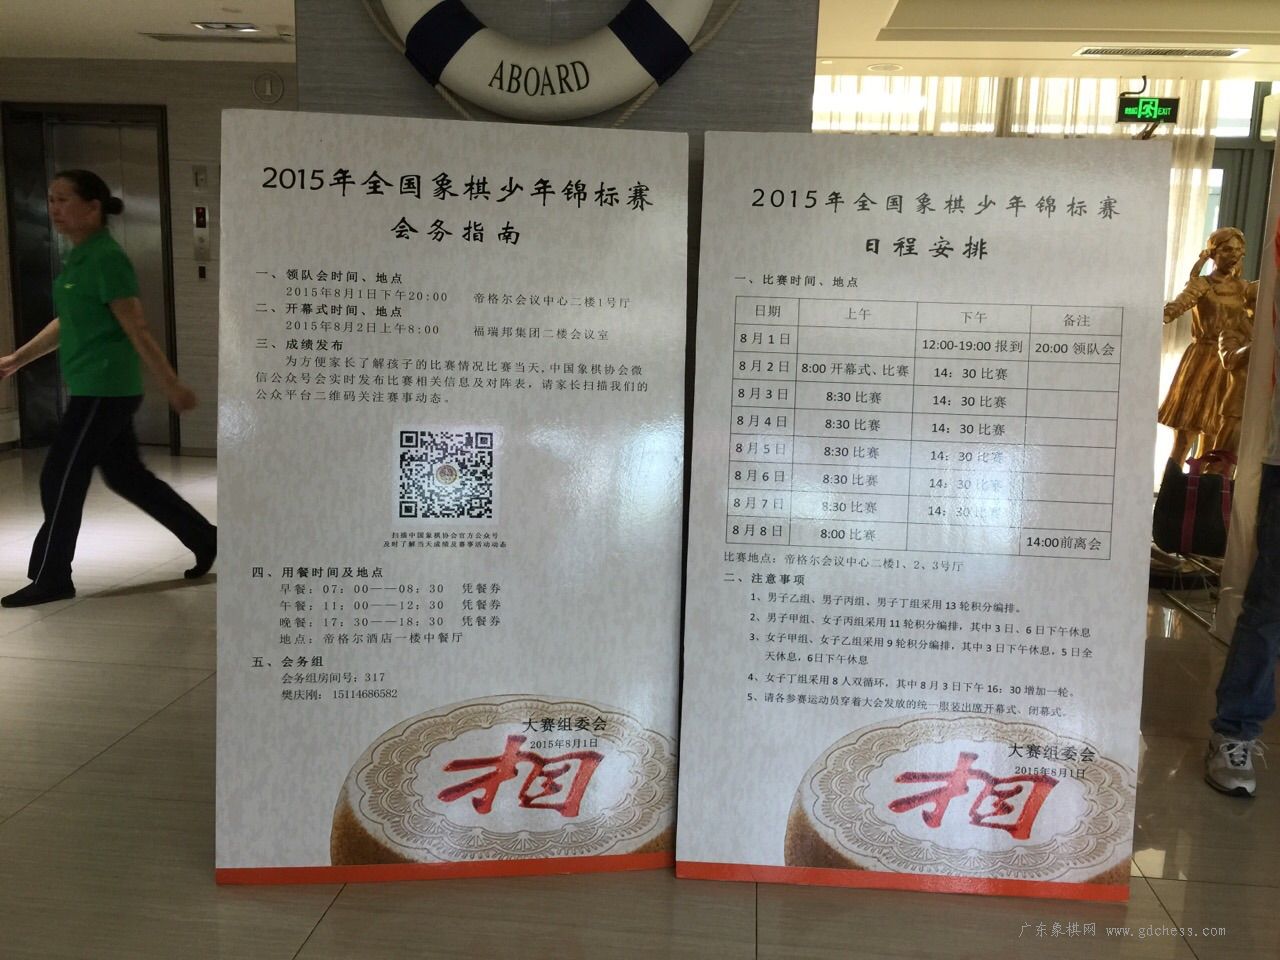 ABOARD
EXIT
2015年全国象棋少年锦标赛
会务指南
一、领队会时间、地点
2015年8月1日下午20:00 帝格尔会议中心二楼1号厅
二、开幕式时间、地点
2015年8月2日上午8:00 福瑞邦集团二楼会议室
三、成绩发布
为方便家长了解孩子的比赛情况比赛当天,中国象棋协会微
信公众号会实时发布比赛相关信息及对阵表，请家长扫描我们的
公众平台二维码关注赛事动态。
扫描中国象棋协会官方公众号
及时了解当天成绩及赛事活动动态
四、用餐时间及地点
早餐：07：00——08：30 凭餐券
午餐：11：00——12：30 凭餐券
晚餐：17：30——18：30 凭餐券
地点：帝格尔酒店一楼中餐厅
五、会务组
会务组房间号：317
樊庆刚： 15114686582
大赛组委会
2015年8月1日
相
2015年全国象棋少年锦标赛
日程安排
一、比赛时间、地点
日期 上午 下午 备注
8月1日 12:00-19:00 报到 20:00 领队会
8月2日 8:00 开幕式、比赛 14：30 比赛
8月3日 8:30 比赛 14：30 比赛
8月4日 8:30 比赛 14：30 比赛
8月5日 8:30 比赛 14：30 比赛
8月6日 8:30 比赛 14：30 比赛
8月7日 8:30 比赛 14：30 比赛
8月8日 8:00 比赛 14:00前离会
比赛地点：帝格尔会议中心二楼1、2、3号厅
二、注意事项
1、男子乙组、男子丙组、男子丁组采用 13 轮积分编排。
2、男子甲组、女子丙组采用 11 轮积分编排，其中 3 日、6 日下午休息
3、女子甲组、女子乙组采用 9 轮积分编排，其中 3 日下午休息，5 日全
天休息，6日下午休息
4、女子丁组采用 8 人双循环，其中 8 月 3 日下午 16：30 增加一轮。
5、请各参赛运动员穿着大会发放的统一服装出席开幕式、闭幕式。
大赛组委会
2015年8月1日
相
广东象棋网 www.gdchess.com